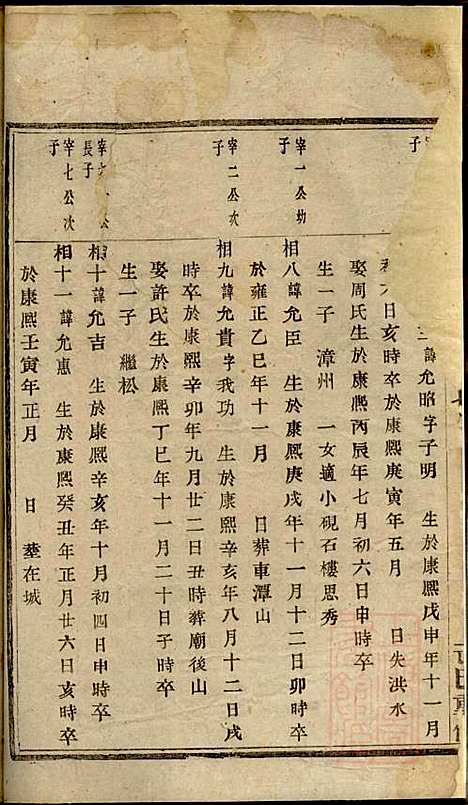 子
諱允昭字子明 生於康熙戊申年十一月
日亥時卒於康熙庚寅年五月 日失洪水
娶周氏生於康熙丙辰年七月初六日申時卒
生一子 漳州 一女適小硯石樓思秀
宰一公幼子
相八諱允臣 生於康熙庚戌年十一月十二日卯時卒
於雍正乙巳年十一月 日葬車潭山
宰二公次子
相九諱允貴字我功 生於康熙辛亥年八月十二日戌
時卒於康熙辛卯年九月廿二日丑時葬廟後山
娶許氏生於康熙丁巳年十一月二十日子時卒
生一子 繼松
宰 公長子
相十諱允吉 生於康熙辛亥年十月初四日申時卒
宰七公次子
相十一諱允惠 生於康熙癸丑年正月廿六日亥時卒
於康熙壬寅年正月 日 塟在城